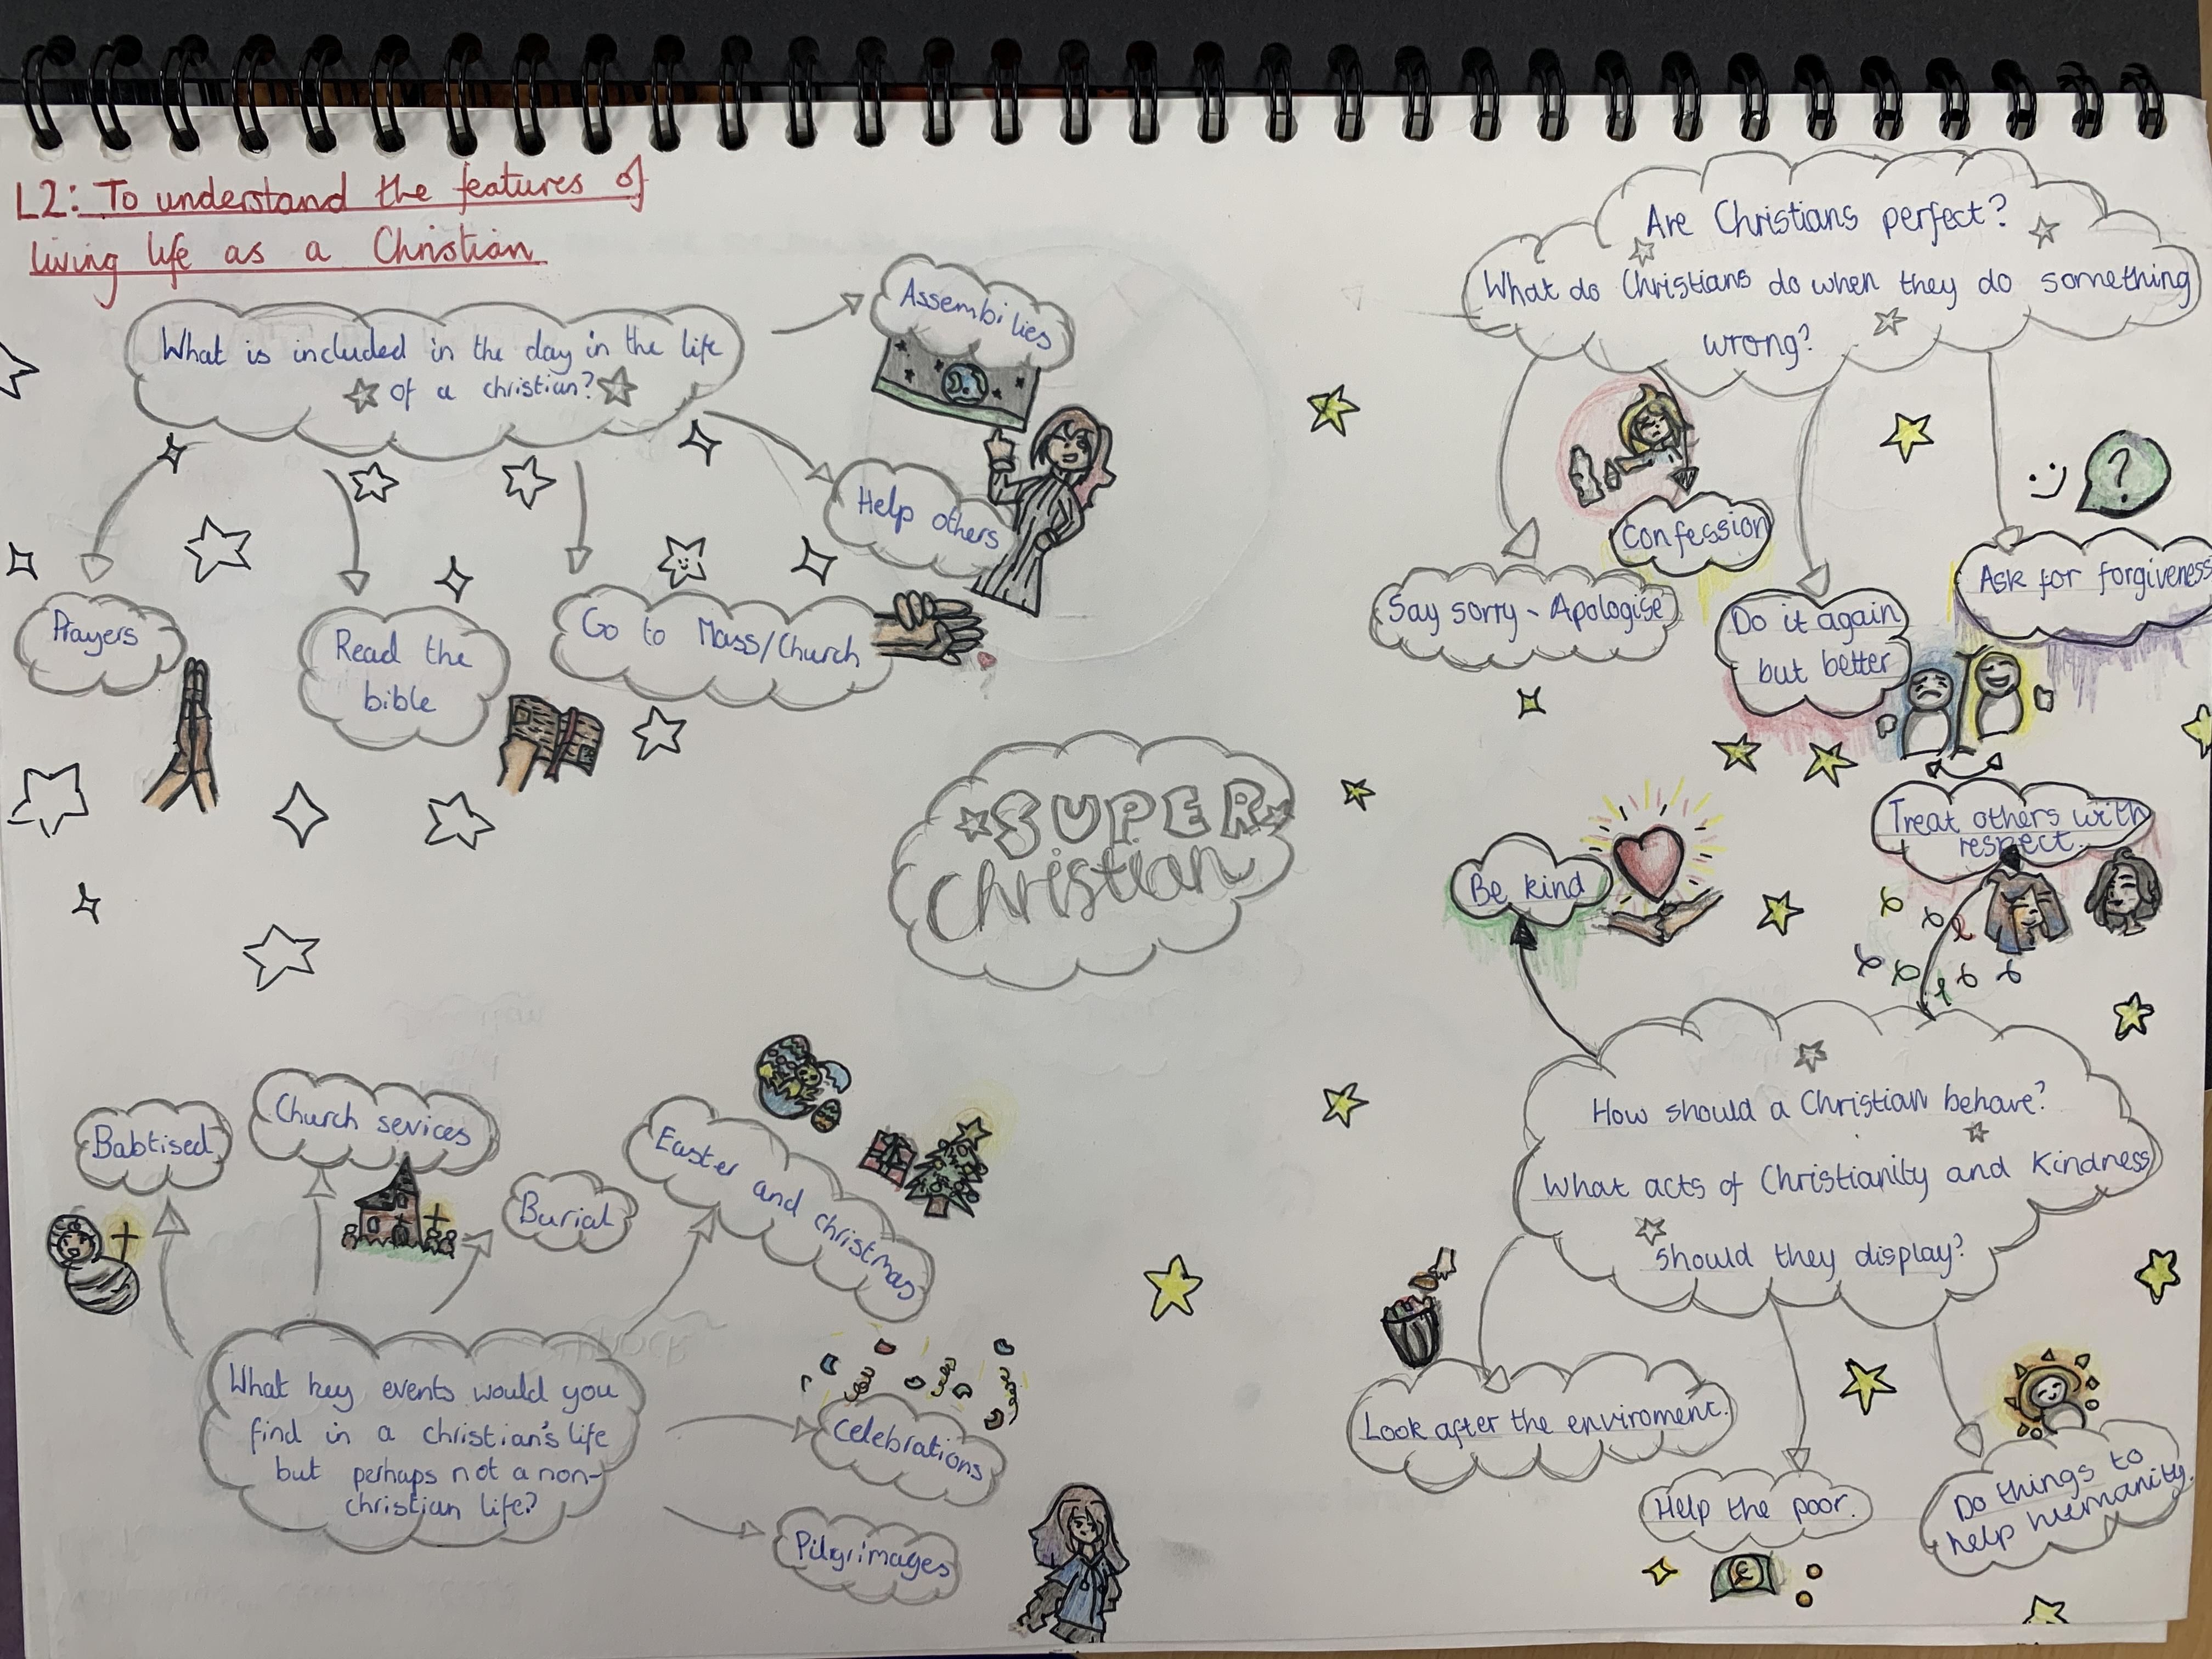 L2: To understand the features of
living life as a Christian
What is included in the day in the life
of a christian?
Assembilies
Help others
Prayers
Read the
bible
Go to Mass/Church
SUPER
Christian
Are Christians perfect?
What do Christians do when they do something
wrong?
Confession
Say sorry - Apologise
Do it again
but better
?
Ask for forgiveness
Treat others with
respect.
Be kind
How should a Christian behave?
What acts of Christianity and Kindness
should they display?
Look after the enviroment.
Help the poor.
£
Do things to
help humanity.
Babtised
Church sevices
Burial
Easter and
christmas
What key events would you
find in a christian's life
but perhaps not a non-
christian life?
Celebrations
Pilgrimages